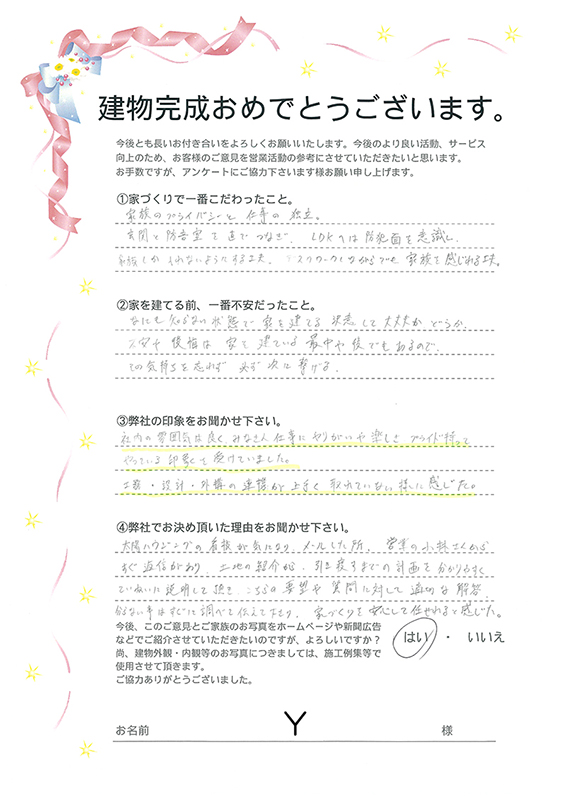 建物完成おめでとうございます。
今後とも長いお付き合いをよろしくお願いいたします。今後のより良い活動、サービス
向上のため、お客様のご意見を営業活動の参考にさせていただきたいと思います。
お手数ですが、アンケートにご協力下さいます様お願い申し上げます。
①家づくりで一番こだわったこと。
家族のプライバシーと仕事の独立。
玄関と防音室を直でつなぎ、LDKへは防犯面を意識し、
家族しか入れないようにする工夫。デスクワークしながらでも家族を感じれる工夫。
②家を建てる前、一番不安だったこと。
なにも知らない状態で家を建てる決意して大丈夫かどうか。
不安や後悔は家を建ている最中や後でもあるので、
その気持ちを忘れず必ず次に繋げる。
③弊社の印象をお聞かせ下さい。
社内の雰囲気は良く、みなさん仕事にやりがいや楽しさ、プライド持って
やっている印象を受けていました。
工務・設計・外構の連携が上手く取れていない様に感じた。
④弊社でお決め頂いた理由をお聞かせ下さい。
太陽ハウジングの看板が気になり、メールした所、営業の小林さんから
すぐ返信があり、土地の紹介から、引き渡すまでの計画を分かりやすく
ていねいに説明して頂き、こちらの要望や質問に対して適切な解答
分らない事はすぐに調べて伝えて下さり、家づくりを安心して任せれると感じた。
今後、このご意見とご家族のお写真をホームページや新聞広告
などでご紹介させていただきたいのですが、よろしいですか？
はい ・ いいえ
尚、建物外観・内観等のお写真につきましては、施工例集等で
使用させて頂きます。
ご協力ありがとうございました。
お名前 Y 様